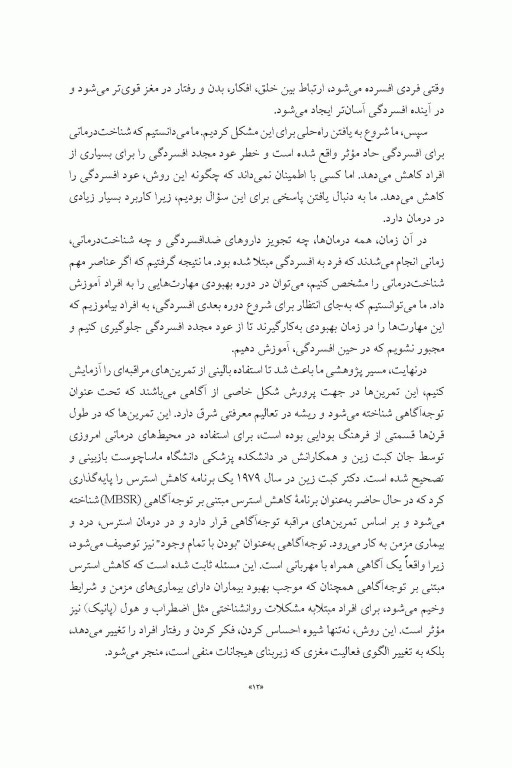 وقتی فردی افسرده می‌شود، ارتباط بین خلق، افکار، بدن و رفتار در مغز قوی‌تر می‌شود و
در آینده افسردگی آسان‌تر ایجاد می‌شود.
سپس، ما شروع به یافتن راه‌حلی برای این مشکل کردیم. ما می‌دانستیم که شناخت‌درمانی
برای افسردگی حاد مؤثر واقع شده است و خطر عود مجدد افسردگی را برای بسیاری از
افراد کاهش می‌دهد. اما کسی با اطمینان نمی‌داند که چگونه این روش، عود افسردگی را
کاهش می‌دهد. ما به دنبال یافتن پاسخی برای این سؤال بودیم، زیرا کاربرد بسیار زیادی
در درمان دارد.
در آن زمان، همه درمان‌ها، چه تجویز داروهای ضدافسردگی و چه شناخت‌درمانی،
زمانی انجام می‌شدند که فرد به افسردگی مبتلا شده بود. ما نتیجه گرفتیم که اگر عناصر مهم
شناخت‌درمانی را مشخص کنیم، می‌توان در دوره بهبودی مهارت‌هایی را به افراد آموزش
داد. ما می‌توانستیم که به‌جای انتظار برای شروع دوره بعدی افسردگی، به افراد بیاموزیم که
این مهارت‌ها را در زمان بهبودی به‌کارگیرند تا از عود مجدد افسردگی جلوگیری کنیم و
مجبور نشویم که در حین افسردگی، آموزش دهیم.
درنهایت، مسیر پژوهشی ما باعث شد تا استفاده بالینی از تمرین‌های مراقبه‌ای را آزمایش
کنیم، این تمرین‌ها در جهت پرورش شکل خاصی از آگاهی می‌باشند که تحت عنوان
توجه‌آگاهی شناخته می‌شود و ریشه در تعالیم معرفتی شرق دارد. این تمرین‌ها که در طول
قرن‌ها قسمتی از فرهنگ بودایی بوده است، برای استفاده در محیط‌های درمانی امروزی
توسط جان کبت زین و همکارانش در دانشکده پزشکی دانشگاه ماساچوست بازبینی و
تصحیح شده است. دکتر کبت زین در سال ۱۹۷۹ یک برنامه کاهش استرس را پایه‌گذاری
کرد که در حال حاضر به‌عنوان برنامۀ کاهش استرس مبتنی بر توجه‌آگاهی (MBSR) شناخته
می‌شود و بر اساس تمرین‌های مراقبه توجه‌آگاهی قرار دارد و در درمان استرس، درد و
بیماری مزمن به کار می‌رود. توجه‌آگاهی به‌عنوان "بودن با تمام وجود" نیز توصیف می‌شود،
زیرا واقعاً یک آگاهی همراه با مهربانی است. این مسئله ثابت شده است که کاهش استرس
مبتنی بر توجه‌آگاهی همچنان که موجب بهبود بیماران دارای بیماری‌های مزمن و شرایط
وخیم می‌شود، برای افراد مبتلابه مشکلات روانشناختی مثل اضطراب و هول (پانیک) نیز
مؤثر است. این روش، نه‌تنها شیوه احساس کردن، فکر کردن و رفتار افراد را تغییر می‌دهد،
بلکه به تغییر الگوی فعالیت مغزی که زیربنای هیجانات منفی است، منجر می‌شود.
«۱۲»